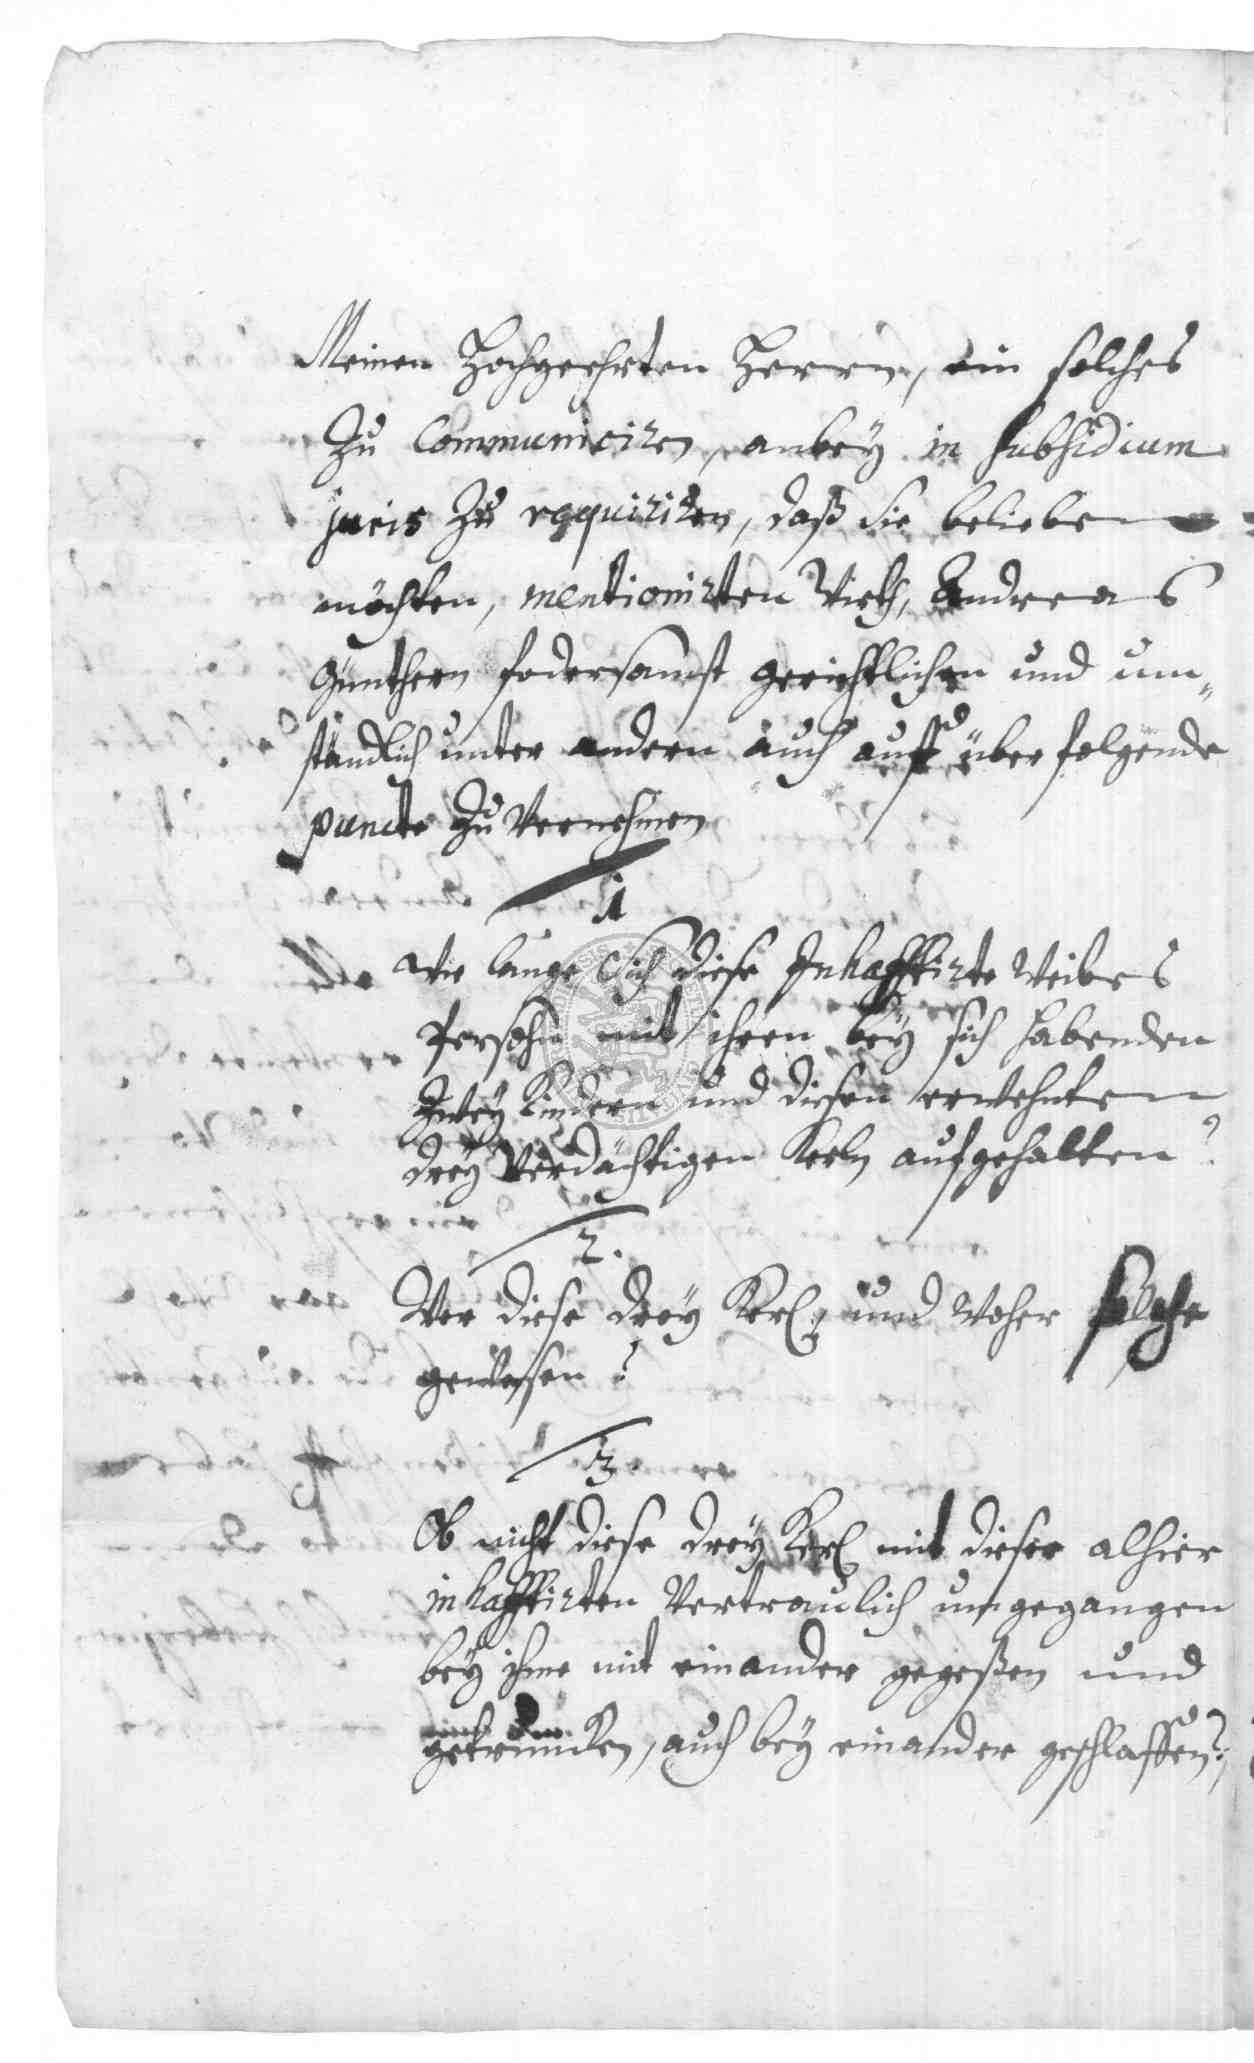 Meinen Hochgeehrten Herrn, ein solches
zu Communiciren, anbey in subsidium
juris zu requiriren, daß sie belieben
möchten, mentionirten Wirth, Andreas
Günthern fodersamst gerichtlichen und um„
ständlich unter andern auch auff über folgende
puncte zu Vernehmen
1
wie lange sich diese Inhafftirte Weibes
Persohn mit ihren bey sich habenden
Zwey Kindern und diesen erwehnten
drey Verdächtigen Kerln aufgehalten?
2.
Wer diese drey Kerl, und woher solche
gewesen?
3.
Ob nicht diese drey Kerl mit dieser alhier
inhafftirten Vertraulich umgegangen
bey ihme mit einander gegeßen und
getruncken, auch bey einander geschlaffen?